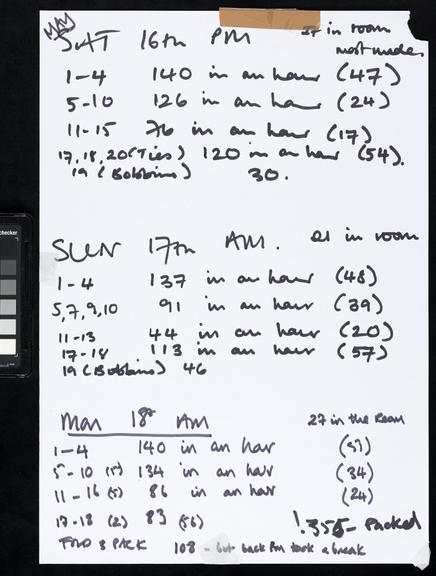 SAT 16th PM 27 in room
most made
1-4 140 in an hour (47)
5-10 126 in an hour (24)
11-15 76 in an hour (17)
17,18,20 (Ties) 120 in an hour (54).
19 (Bobbins) 30.
SUN 17th AM. 21 in room
1-4 137 in an hour (48)
5,7,9,10 91 in an hour (39)
11-13 44 in an hour (20)
17-18 113 in an hour (57)
19 (Bobbins) 46
Mon 18th AM 27 in the Room
1-4 140 in an hour
5-10 (5) 134 in an hour (34)
11-16 (5) 86 in an hour (24)
17-18 (2) 83 (56)
355 - Packed
FOLD & PACK 108 - but back Pm took a break
checker